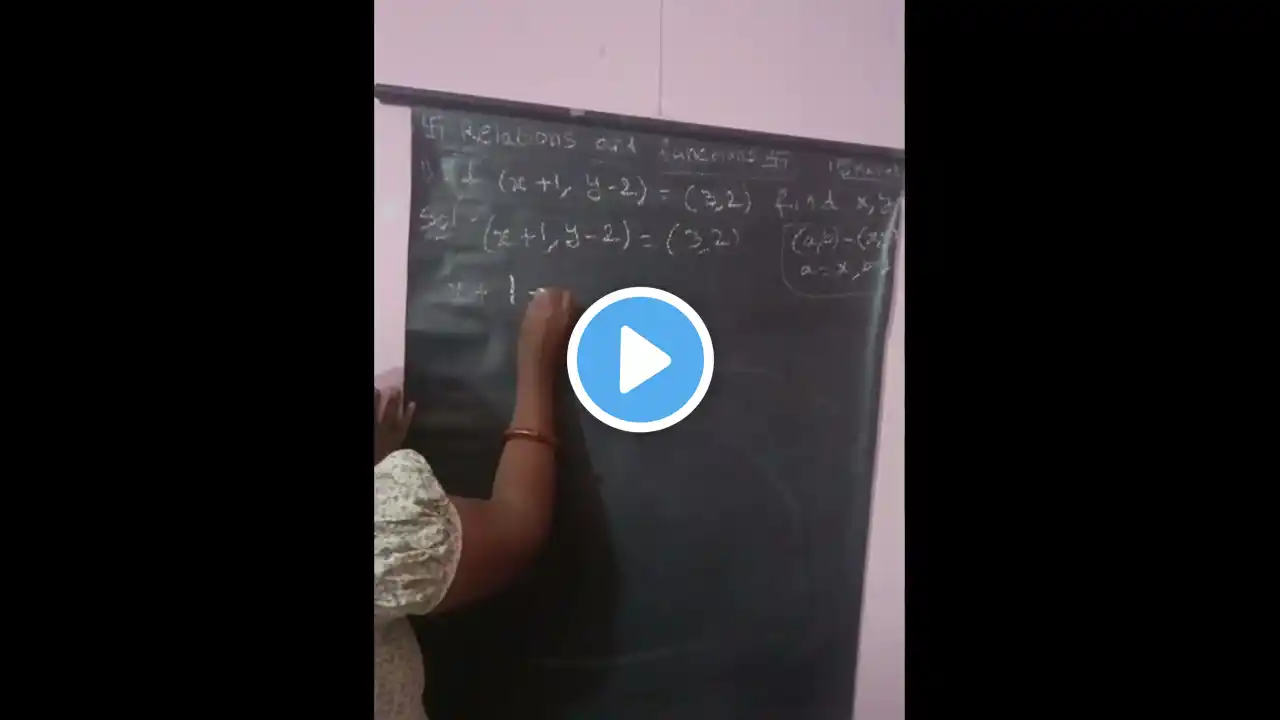 卐 Relations and functions 卐
1) If (x+1, y-2) = (3,2) find x,y
Sol:- (x+1, y-2) = (3,2)
(a,b) = (x,y)
a = x, b=
x + 1 =